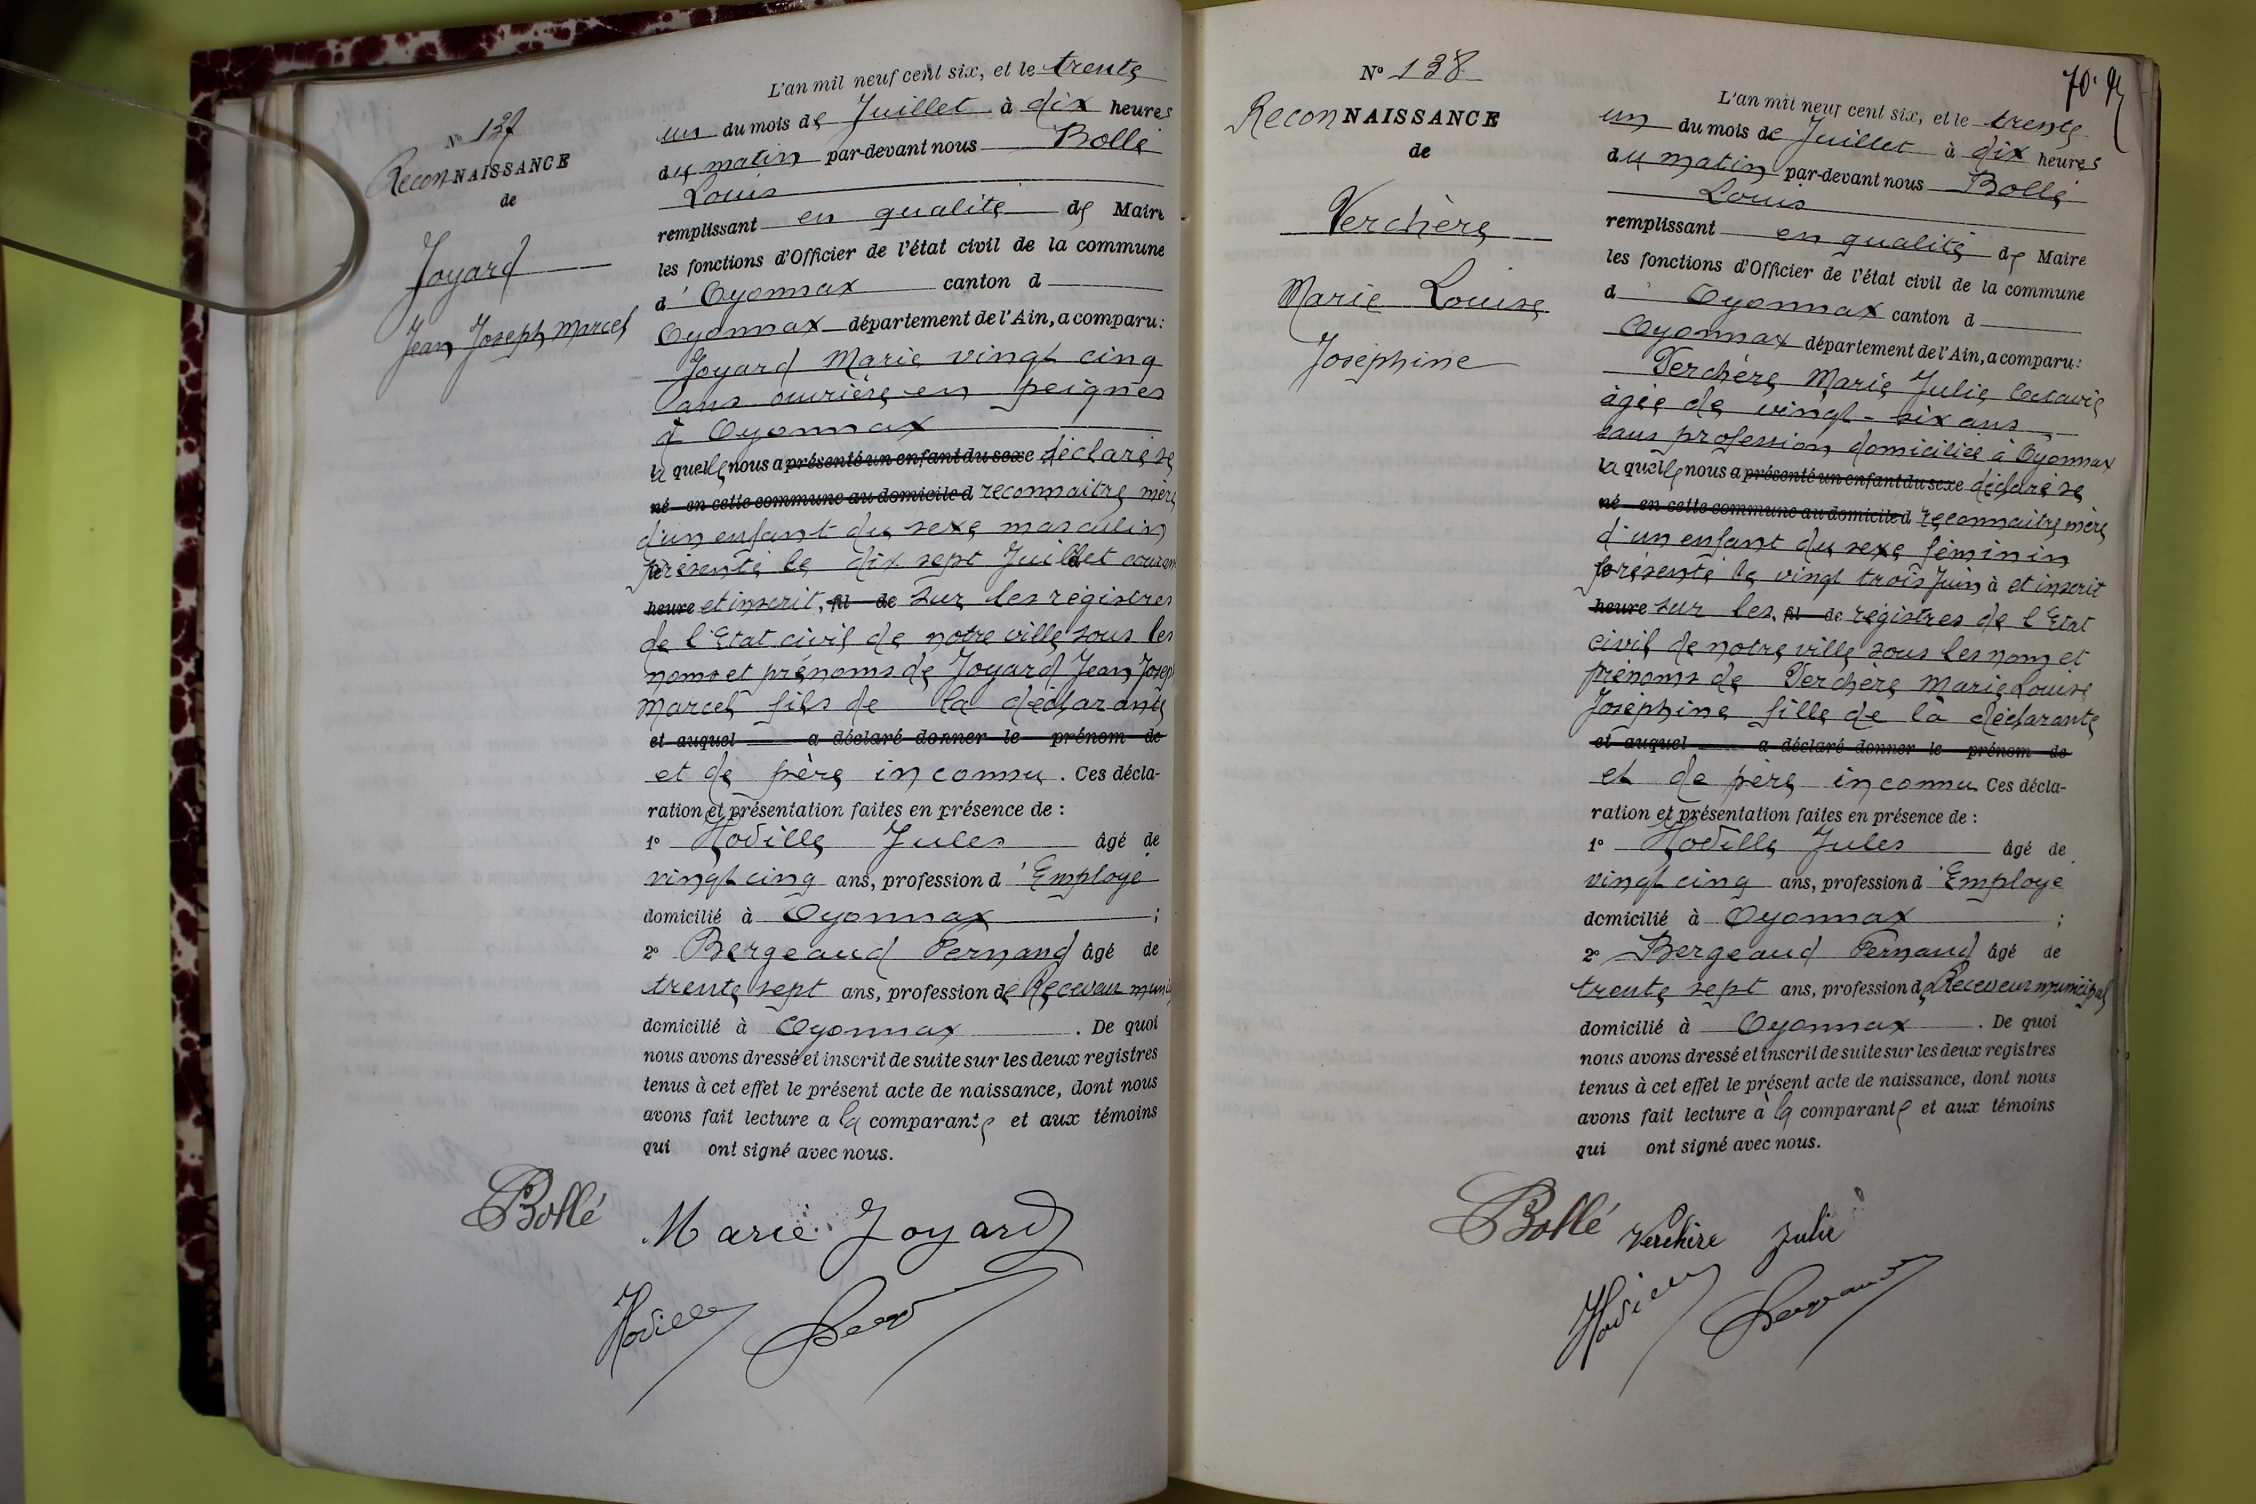 N° 137
ReconNAISSANCE
de
Joyard
Jean Joseph Marcel
L'an mil neuf cent six, et le trente
un du mois de Juillet à dix heures
du matin par-devant nous Bollé
Louis
remplissant en qualité de Maire
les fonctions d'Officier de l'état civil de la commune
d'Oyonnax canton d
Oyonnax département de l'Ain, a comparu:
Joyard Marie vingt cinq
ans ouvrière en peignes
à Oyonnax
la quelle nous a présenté un enfant du sexe déclaré se
né en cette commune au domicile d reconnaitre mère
d'un enfant du sexe masculin
présenté le dix sept Juillet courant
heure et inscrit, fil de sur les registres
de l'Etat civil de notre ville sous les
noms et prénoms de Joyard Jean Joseph
Marcel fils de la déclarante
et auquel a déclaré donner le prénom de
et de père inconnu. Ces décla-
ration et présentation faites en présence de :
1° Hodille Jules âgé de
vingt cinq ans, profession d'Employé
domicilié à Oyonnax ;
2° Bergeaud Fernand âgé de
trente sept ans, profession de Receveur muni
domicilié à Oyonnax. De quoi
nous avons dressé et inscrit de suite sur les deux registres
tenus à cet effet le présent acte de naissance, dont nous
avons fait lecture a la comparante et aux témoins
qui ont signé avec nous.
Bollé Marie Joyard
Hodille
N° 138
ReconNAISSANCE
de
Verchère
Marie Louise
Joséphine
70.
L'an mil neuf cent six, et le trente
un du mois de Juillet à dix heures
du matin par-devant nous Bollé
Louis
remplissant en qualité de Maire
les fonctions d'Officier de l'état civil de la commune
d'Oyonnax canton d
Oyonnax département de l'Ain, a comparu:
Verchère Marie Julie Octavie
âgée de vingt-six ans
sans profession domiciliée à Oyonnax
la quelle nous a présenté un enfant du sexe déclaré se
né en cette commune au domicile d reconnaitre mère
d'un enfant du sexe féminin
présenté le vingt trois Juin à et inscrit
heure sur les, fil de registres de l'Etat
civil de notre ville sous les nom et
prénoms de Verchère Marie Louise
Joséphine fille de la déclarante
et auquel a déclaré donner le prénom de
et de père inconnu Ces décla-
ration et présentation faites en présence de :
1° Hodille Jules âgé de
vingt cinq ans, profession d'Employé
domicilié à Oyonnax ;
2° Bergeaud Fernand âgé de
trente sept ans, profession de Receveur municipal
domicilié à Oyonnax. De quoi
nous avons dressé et inscrit de suite sur les deux registres
tenus à cet effet le présent acte de naissance, dont nous
avons fait lecture à la comparante et aux témoins
qui ont signé avec nous.
Bollé Verchère Julie
Hodille Bergeaud